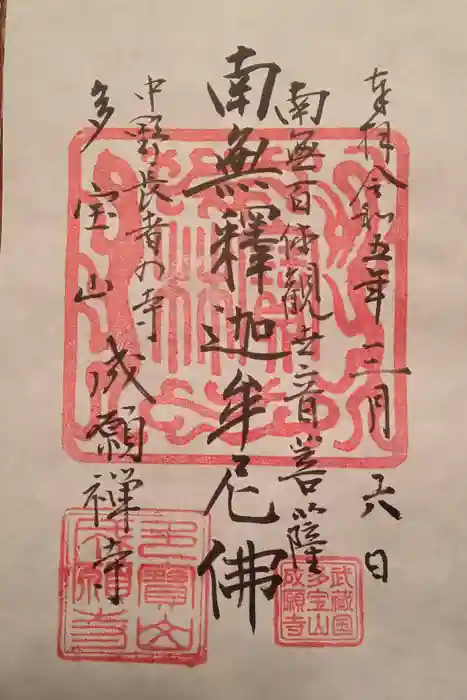 奉拝 令和五年三月六日
南無百体観世音菩薩
南無釋迦牟尼佛
中野長者の寺
多宝山 成願禅寺
武蔵国
多宝山
成願寺
多寳山
成願寺